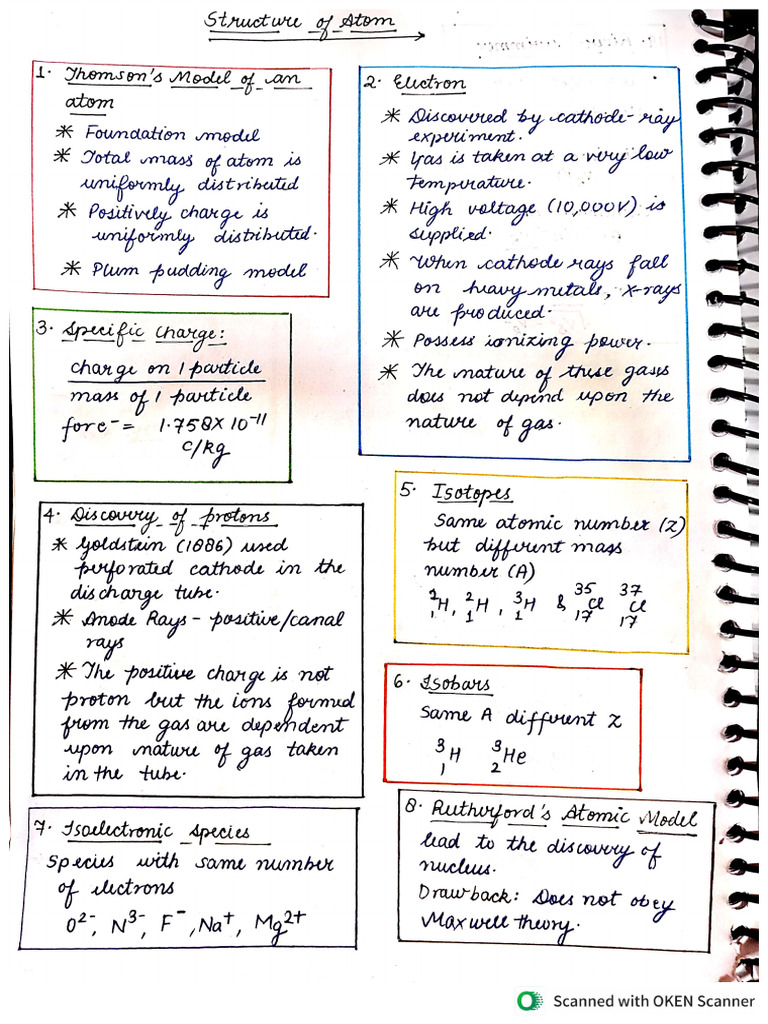 Structure of Atom
1. Thomson's Model of an
atom
* Foundation model
* Total mass of atom is
uniformly distributed
* Positively charge is
uniformly distributed.
* Plum pudding model
2. Electron
* Discovered by cathode-ray
experiment.
* Gas is taken at a very low
temperature.
* High voltage (10,000V) is
supplied.
* When cathode rays fall
on heavy metals, X-rays
are produced.
* Possess ionizing power.
* The nature of these gases
does not depend upon the
nature of gas.
3. Specific Charge:
charge on 1 particle
mass of 1 particle
for e⁻ = 1.758 X 10⁻¹¹
C/kg
4. Discovery of protons
* Goldstein (1886) used
perforated cathode in the
discharge tube.
* Anode Rays - positive/canal
rays
* The positive charge is not
proton but the ions formed
from the gas are dependent
upon nature of gas taken
in the tube.
5. Isotopes
Same atomic number (Z)
but different mass
number (A)
¹₁H, ²₁H, ³₁H & ³⁵₁₇Cl ³⁷₁₇Cl
6. Isobars
Same A different Z
³₁H ³₂He
7. Isoelectronic Species
Species with same number
of electrons
O²⁻, N³⁻, F⁻, Na⁺, Mg²⁺
8. Rutherford's Atomic Model
lead to the discovery of
nucleus.
Drawback: Does not obey
Maxwell theory.
Scanned with OKEN Scanner